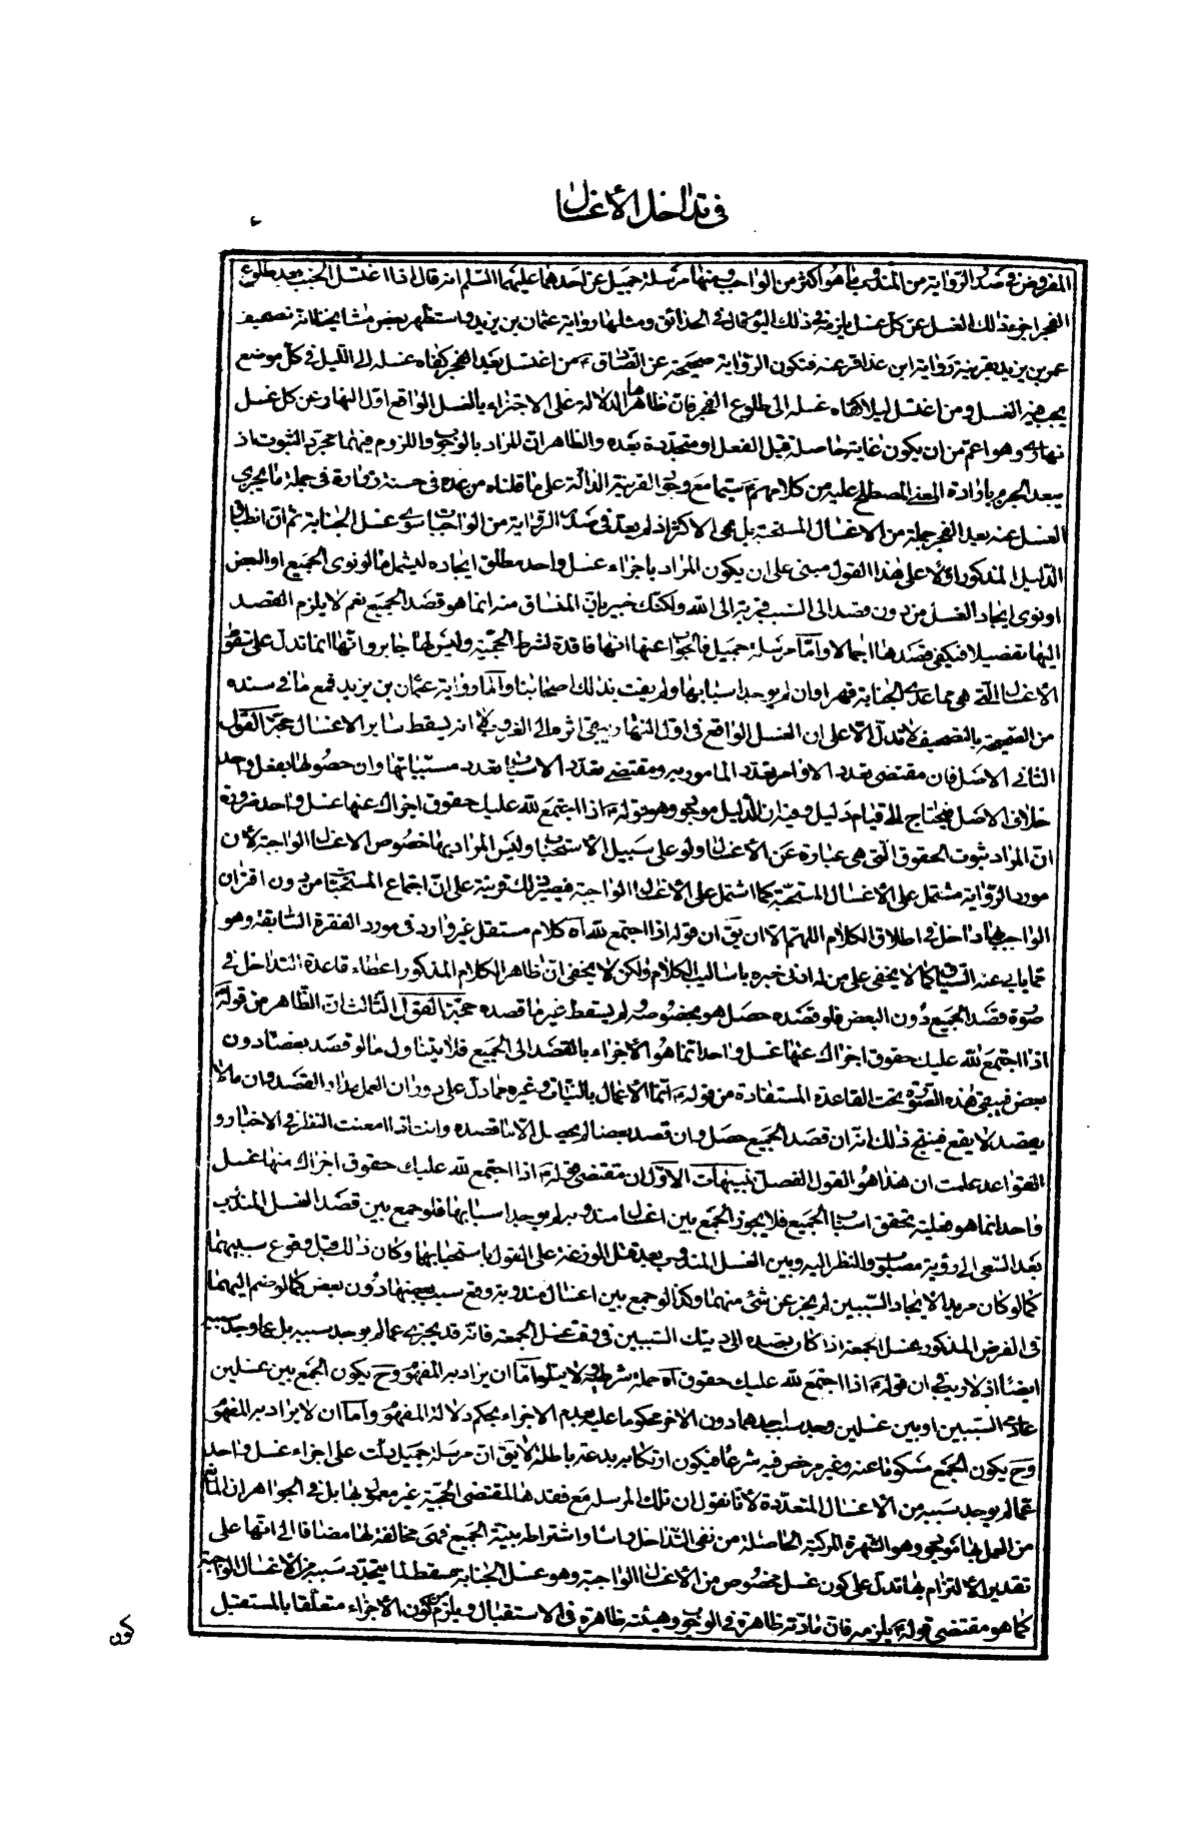 في تداخل الأغسال
المفروض في صدر الرواية من المندوب ما هو أكثر من الواجب ومنها مرسلة جميل عن احدهما عليهما السّلم انه قال اذا اغتسل الجنب بعد طلوع
الفجر اجزء ذلك الغسل عن كل غسل يلزمه في ذلك اليوم قال في الحدائق ومثلها رواية عثمان بن يزيد واستظهر بعض مشايخنا انه تصحيف
عمر بن يزيد بقرينة رواية ابن عذافر عنه فتكون الرّواية صحيحة عن الصّادق ع من اغتسل بعد الفجر كفاه غسله الى الليل في كلّ موضع
يجب فيه الغسل ومن اغتسل ليلا كفاه غسله الى طلوع الفجر فان ظاهرها الدلالة على الاجتزاء بالغسل الواقع اول النهار عن كل غسل
نهاري وهو اعم من ان يكون غايته حاصلة قبل الفعل او متجدّدة بعده والظاهر ان المراد بالوجوب واللزوم فيهما مجرّد الثبوت اذ
يبعد الجزم بارادة المعنى المصطلح عليه من كلامهم ع سيّما مع وجود القرينة الدالّة على ما قلناه من عده في حسنة زرارة في جملة ما يجزي
الغسل عنه بعد الفجر جملة من الاغسال المستحبّة بل هي الاكثر اذ لم يعد في صدر الرّواية من الواجبات سوى غسل الجنابة ثم ان انطباق
الدّليل المذكور اوّلا على هذا القول مبني على ان يكون المراد باجزاء غسل واحد مطلق ايجاده ليشمل ما لو نوى الجميع او البعض
او نوى ايجاد الغسل من دون قصد الى السّبب قربة الى الله ولكنّك خبير بانّ المنساق منه انما هو قصد الجميع نعم لا يلزم القصد
اليها تفصيلا فيكفي قصدها اجمالا وامّا مرسلة جميل فالجواب عنها انّها فاقدة لشرط الحجّية وليس لها جابر وانّها انما تدلّ على سقوط
الأغسال الّتي هي ما عدا الجنابة قهرا وان لم يوجد اسبابها ولم يفت بذلك اصحابنا وامّا رواية عثمان بن يزيد فمع ما في سنده
من القصور بالتضعيف لا تدلّ الّا على ان الغسل الواقع في اوّل النّهار يبقى اثره الى الغروب لا انه يسقط ساير الاغسال حجّة القول
الثاني الاصل فان مقتضى تعدد الاوامر تعدّد المامور به ومقتضى تعدّد الاسباب تعدد مسبّباتها وان حصولها بفعل واحد
خلاف الاصل فيحتاج الى قيام دليل وفيه ان الدّليل موجود وهو قوله ع اذا اجتمع لله عليك حقوق اجزاك عنها غسل واحد ضرورة
انّ المراد ثبوت الحقوق الّتي هي عبارة عن الأغسال ولو على سبيل الأستحباب وليس المراد بها خصوص الاغسال الواجبة لأن
مورد الرّواية مشتمل على الأغسال المستحبّة كما اشتمل على الأغسال الواجبة فيصير ذلك قرينة على انّ اجتماع المستحبّات من دون اقتران
الواجب بها داخل في اطلاق الكلام اللهمّ الّا ان يق ان قوله اذا اجتمع لله اه كلام مستقل غير وارد في مورد الفقرة السّابقة وهو
ممّا ياب عنه السّياق كما لا يخفى على من له ادنى خبره باساليب الكلام ولكن لا يخفى انّ ظاهر الكلام المذكور اعطاء قاعدة التداخل في
صورة قصد الجميع دون البعض فلو قصده حصل هو بخصوصه ولم يسقط غير ما قصده حجّة القول الثّالث ان الظّاهر من قوله ع
اذا اجتمع لله عليك حقوق اجزاك عنها غسل واحد انّما هو الأجزاء بالقصد الى الجميع فلا يتناول ما لو قصد بعضا دون
بعض فيبقى هذه الصّورة تحت القاعدة المستفادة من قوله ع انّما الأعمال بالنّيات وغيره ممّا دلّ على دوران العمل مدار القصد وان ما لا
يقصد لا يقع فينتج ذلك انّه ان قصد الجميع حصل وان قصد بعضا لم يحصل الّا ما قصده وانت اذا امعنت النظر في الاخبار و
القواعد علمت ان هذا هو القول الفصل تنبيهات الأوّل ان مقتضى قوله ع اذا اجتمع لله عليك حقوق اجزاك منها غسل
واحد انما هو فعليّة تحقق اسباب الجميع فلا يجوز الجمع بين اغسال مندوبة لم يوجد اسبابها فلو جمع بين قصد الغسل المندوب
بعد السّعي الى رؤية مصلوب والنظر اليه وبين الغسل المندوب بعد قتل الوزغة على القول باستحبابهما وكان ذلك قبل وقوع سببهما
كما لو كان مريدا لايجاد السّببين لم يجز عن شئ منهما وكذا لو جمع بين اغسال مندوبة وقع سبب بعضها دون بعض كما لو ضم اليهما
في الفرض المذكور غسل الجمعة اذا كان بقصده الى ذينك السّببين في وقت غسل الجمعة فانّه قد يجزي عما لم يوجد سببه بل عما وجد سببه
ايضا اذ لا ريب في ان قوله ع اذا اجتمع لله عليك حقوق اه جملة شرطيّة ولا يخلو امّا ان يراد به المفهوم وح يكون الجمع بين غسلين
عادمي السّببين او بين غسلين وجد سبب احدهما دون الآخر محكوما عليه بعدم الاجزاء بحكم دلالة المفهوم وامّا ان لا يراد به المفهوم
وح يكون الجمع مسكوتا عنه وغير مرخص فيه شرعا فيكون ارتكابه بدعة باطلة لا يق انّ مرسلة جميل دلّت على اجزاء غسل واحد
عمّا لم يوجد سببه من الأغسال المتعدّدة لأنّا نقول ان تلك المرسلة مع فقدها المقتضى الحجيّة غير معمول بها بل في الجواهر ان المانع
من العمل بها موجود وهو الشهرة المركبة الحاصلة من نفي التّداخل راسا واشتراطه بنيّة الجميع فهي مخالفة لها مضافا الى انّها على
تقدير الألتزام بها تدلّ على كون غسل مخصوص من الأغسال الواجبة وهو غسل الجنابة مسقطا لما يتجدّد سببه من الأغسال الواجبة
كما هو مقتضى قوله ع يلزمه فان مادّته ظاهرة في الوجوب وهيئته ظاهرة في الاستقبال ويلزم كون الأجزاء متعلّقا بالمستقبل
كون